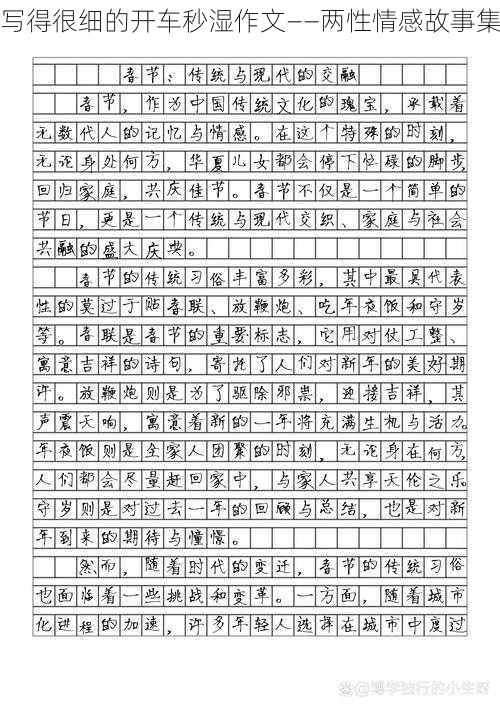 写得很细的开车秒湿作文——两性情感故事集
春节：传统与现代的交融
春节，作为中国传统文化的瑰宝，承载着
无数代人的记忆与情感。在这个特殊的时刻，
无论身处何方，华夏儿女都会停下忙碌的脚步，
回归家庭，共庆佳节。春节不仅是一个简单的
节日，更是一个传统与现代交织、家庭与社会
共融的盛大庆典。
春节的传统习俗丰富多彩，其中最具代表
性的莫过于贴春联、放鞭炮、吃年夜饭和守岁
等。春联是春节的重要标志，它用对仗工整、
寓意吉祥的诗句，寄托了人们对新年的美好期
许。放鞭炮则是为了驱除邪祟，迎接吉祥，其
声震天响，寓意着新的一年将充满生机与活力。
年夜饭则是全家人团聚的时刻，无论身在何方，
人们都会尽量赶回家中，与家人共享天伦之乐。
守岁则是对过去一年的回顾与总结，也是对新
年到来的期待与憧憬。
然而，随着时代的变迁，春节的传统习俗
也面临着一些挑战和变革。一方面，随着城市
化进程的加速，许多年轻人选择在城市中度过
@博学独行的小生呀